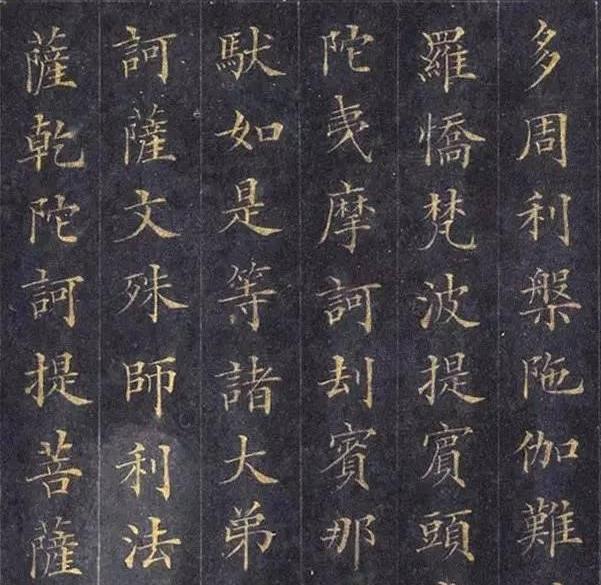 多周利槃陁伽難
羅憍梵波提賓頭
陀夷摩訶刦賓那
馱如是等諸大弟
訶薩文殊師利法
薩乾陀訶提菩薩